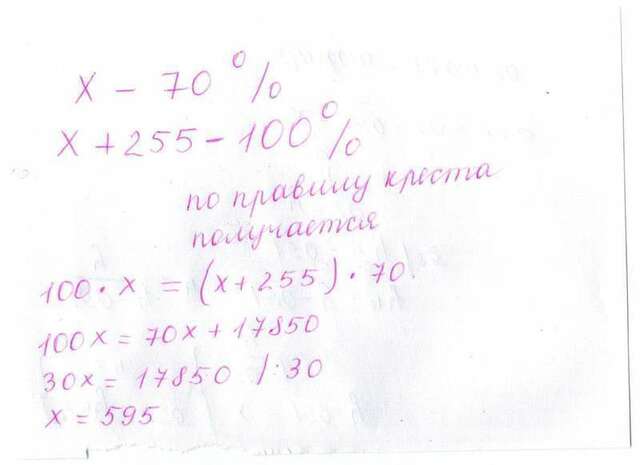 x - 70%
x + 255 - 100%
по правилу креста
получается
100 · x = (x + 255) · 70
100x = 70x + 17850
30x = 17850 /:30
x = 595